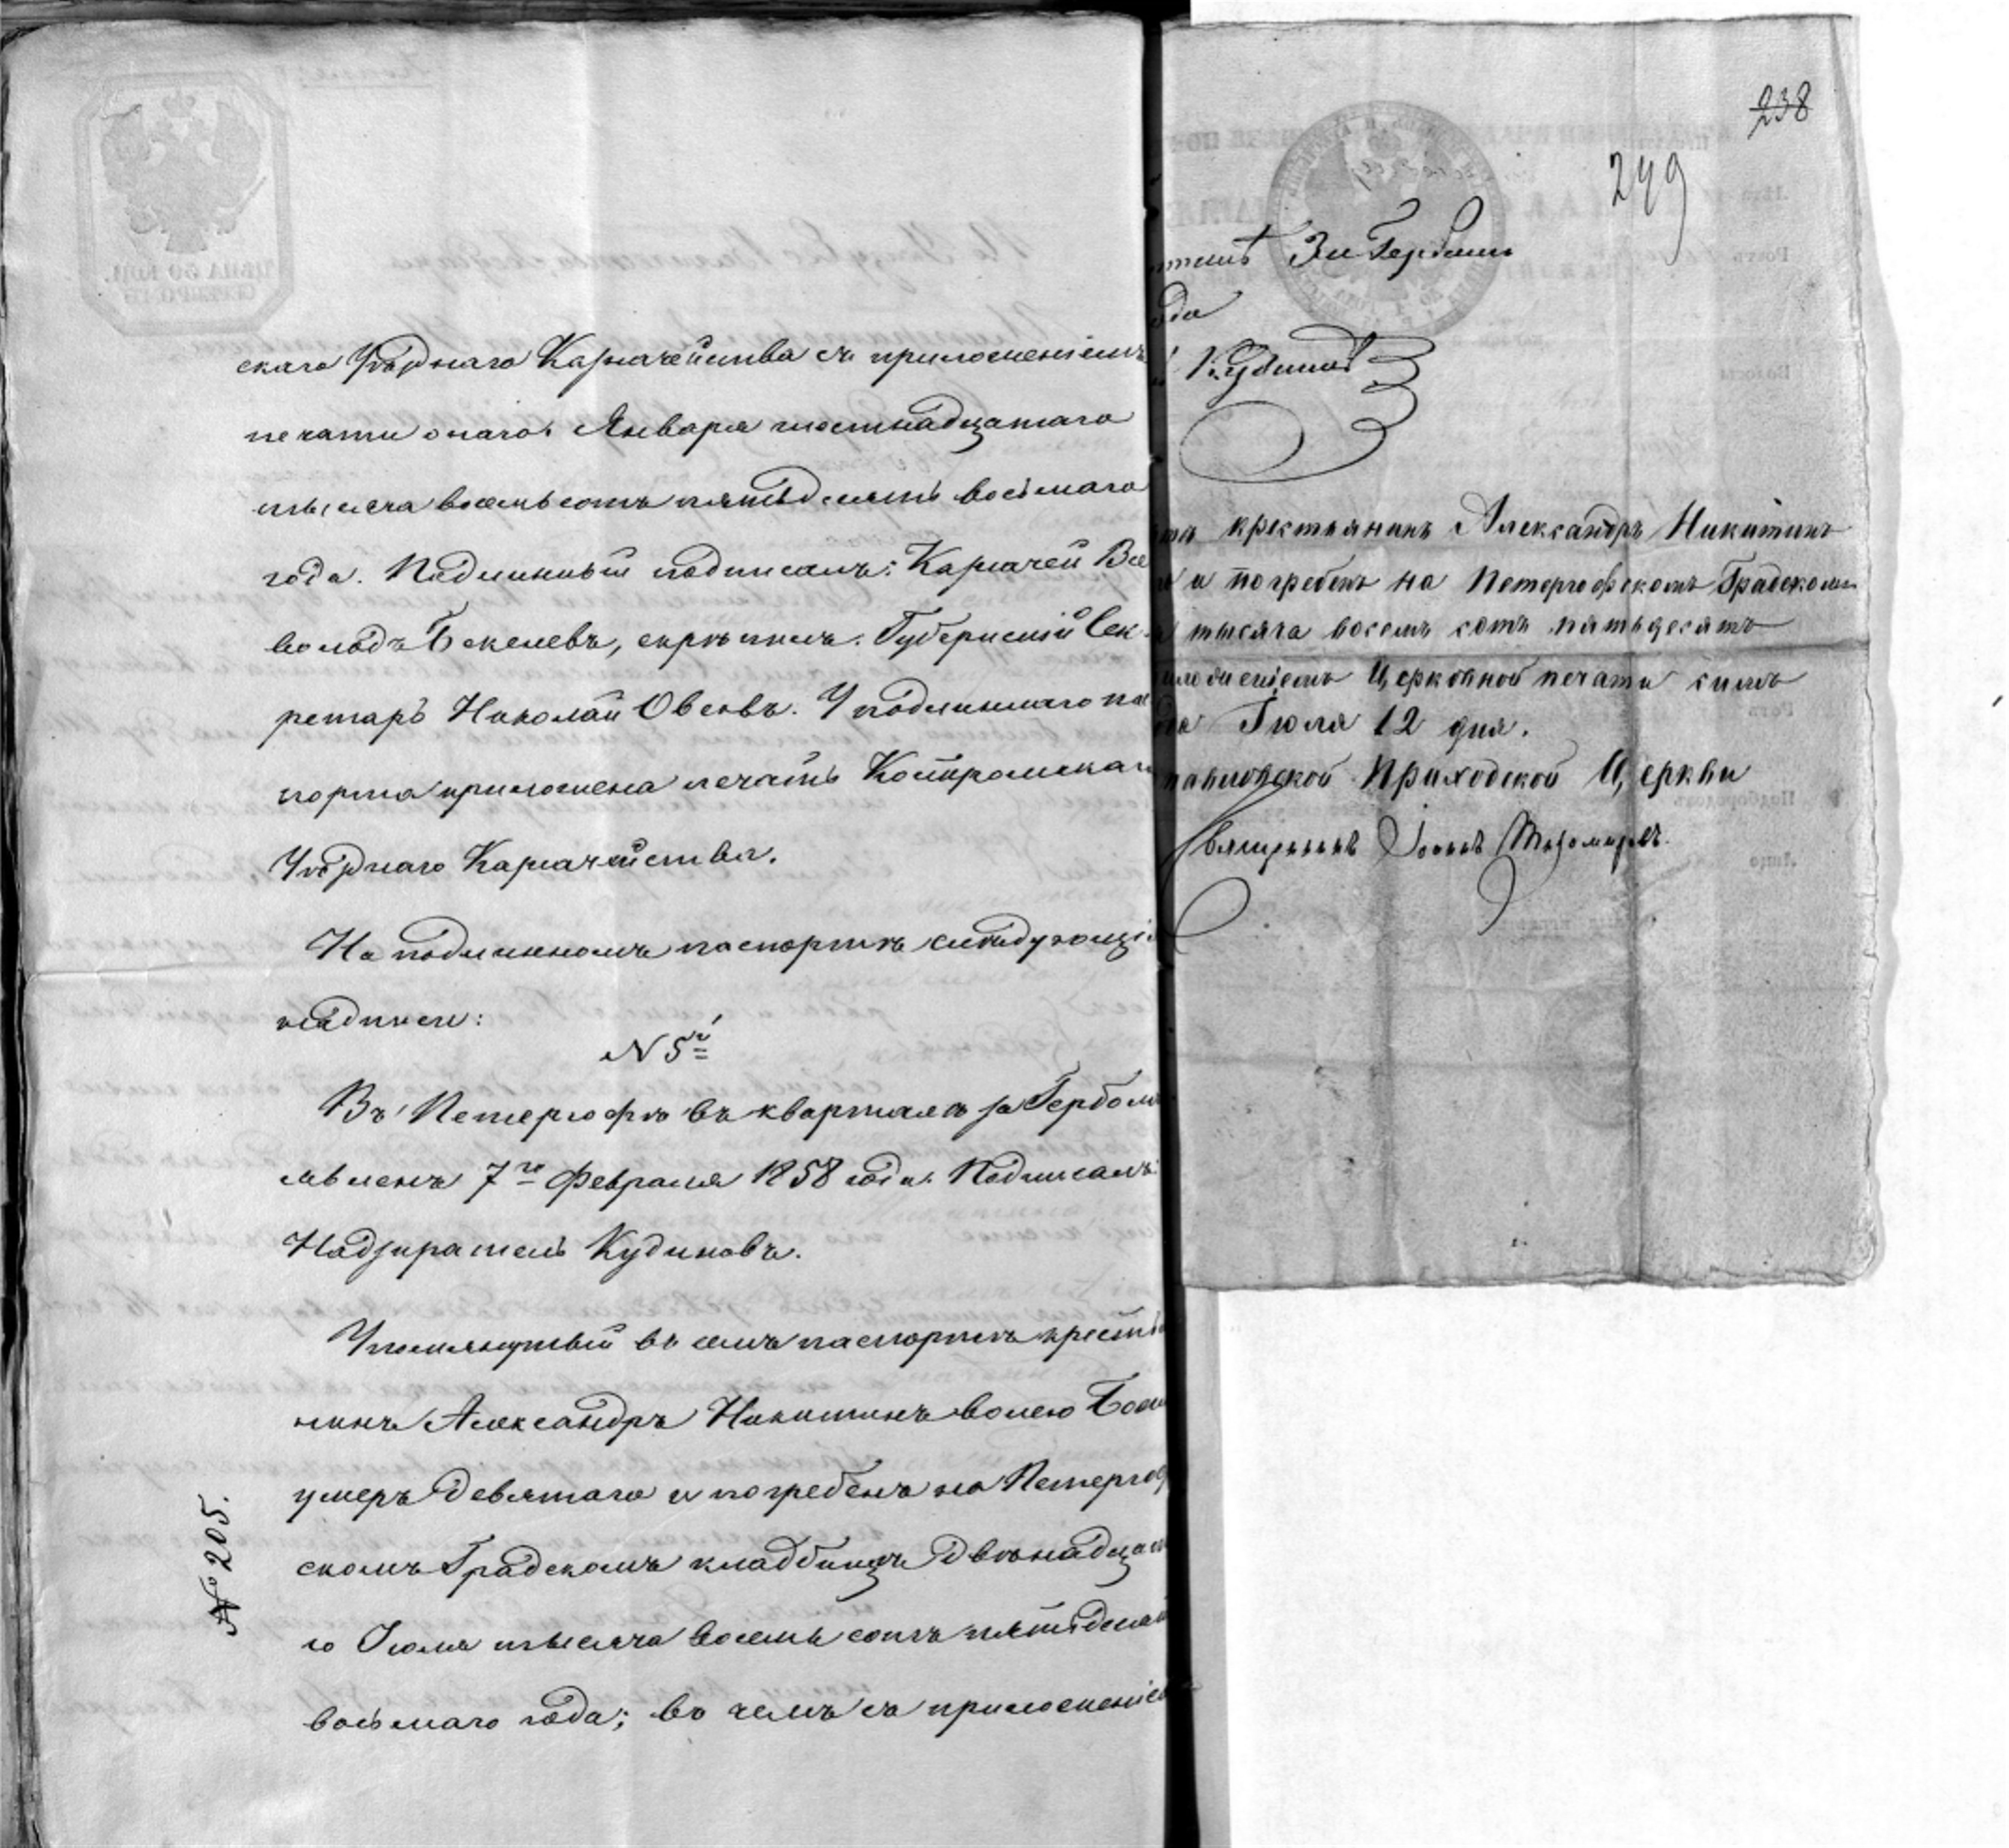 скаго Уѣзднаго Казначейства съ приложеніемъ
печати онаго. Января шестнадцатаго
тысяча восемьсотъ пятьдесятъ восьмаго
года. Подлинный подписалъ: Казначей Все
володъ Бекелевъ, скрѣпилъ: Губернскій Сек
ретарь Николай Овсовъ. У подлиннаго пас
порта приложена печать Костромскаго
Уѣзднаго Казначейства.
На подлинномъ паспортѣ слѣдующія
надписи:
N 5й
Въ Петергофѣ въ кварталѣ за Гербомъ
явленъ 7го Февраля 1858 года. Подписалъ:
Надзиратель Кудиновъ.
Упомянутый въ семъ паспортѣ крестья
нинъ Александръ Никитинъ волею Божію
умеръ девятаго и погребенъ на Петергоф
скомъ Градскомъ кладбищѣ двѣнадцата
го Іюля тысяча восемь сотъ пятьдесятъ
восьмаго года; въ чемъ съ приложеніемъ
№ 205.
238
249
За Гербомъ
ода
Кудиновъ
крестьянинъ Александръ Никитинъ
и погребенъ на Петергофскомъ Градскомъ
тысяча восемь сотъ пятьдесятъ
ложеніемъ Церковной печати симъ
Іюля 12 дня.
павловской Приходской Церкви
Священникъ Іоаннъ
ЦѢНА 30 КОП.
СЕРЕБРОМЪ